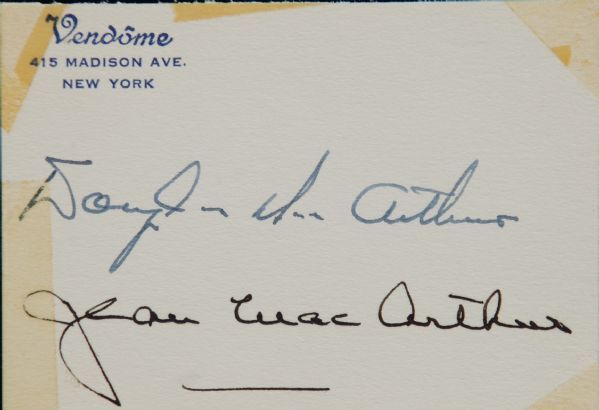 Vendôme
415 MADISON AVE.
NEW YORK
Douglas MacArthur
Jean MacArthur